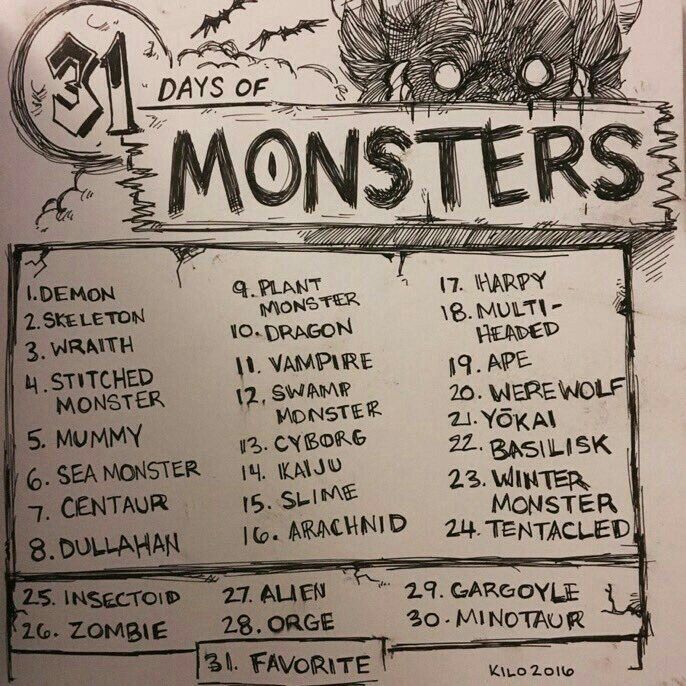 31
DAYS OF
MONSTERS
1. DEMON
2. SKELETON
3. WRAITH
4. STITCHED
MONSTER
5. MUMMY
6. SEA MONSTER
7. CENTAUR
8. DULLAHAN
9. PLANT
MONSTER
10. DRAGON
11. VAMPIRE
12. SWAMP
MONSTER
13. CYBORG
14. KAIJU
15. SLIME
16. ARACHNID
17. HARPY
18. MULTI-
HEADED
19. APE
20. WEREWOLF
21. YŌKAI
22. BASILISK
23. WINTER
MONSTER
24. TENTACLED
25. INSECTOID
26. ZOMBIE
27. ALIEN
28. ORGE
29. GARGOYLE
30. MINOTAUR
31. FAVORITE
KILO 2016